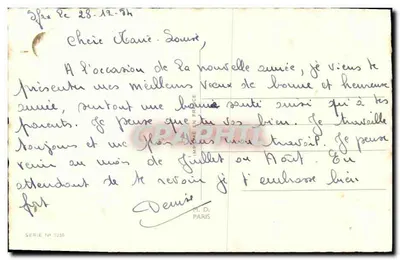 le 28-12-84
Chère Marie-Louise,
A l'occasion de la nouvelle année, je viens te
présenter mes meilleurs vœux de bonne et heureuse
année, surtout une bonne santé ainsi qu'à tes
parents. Je pense que tu vas bien. Je travaille
toujours et me plais dans mon travail. Je pense
venir au mois de Juillet ou Août. En
attendant de te revoir je t'embrasse bien
fort
Denise
PARIS